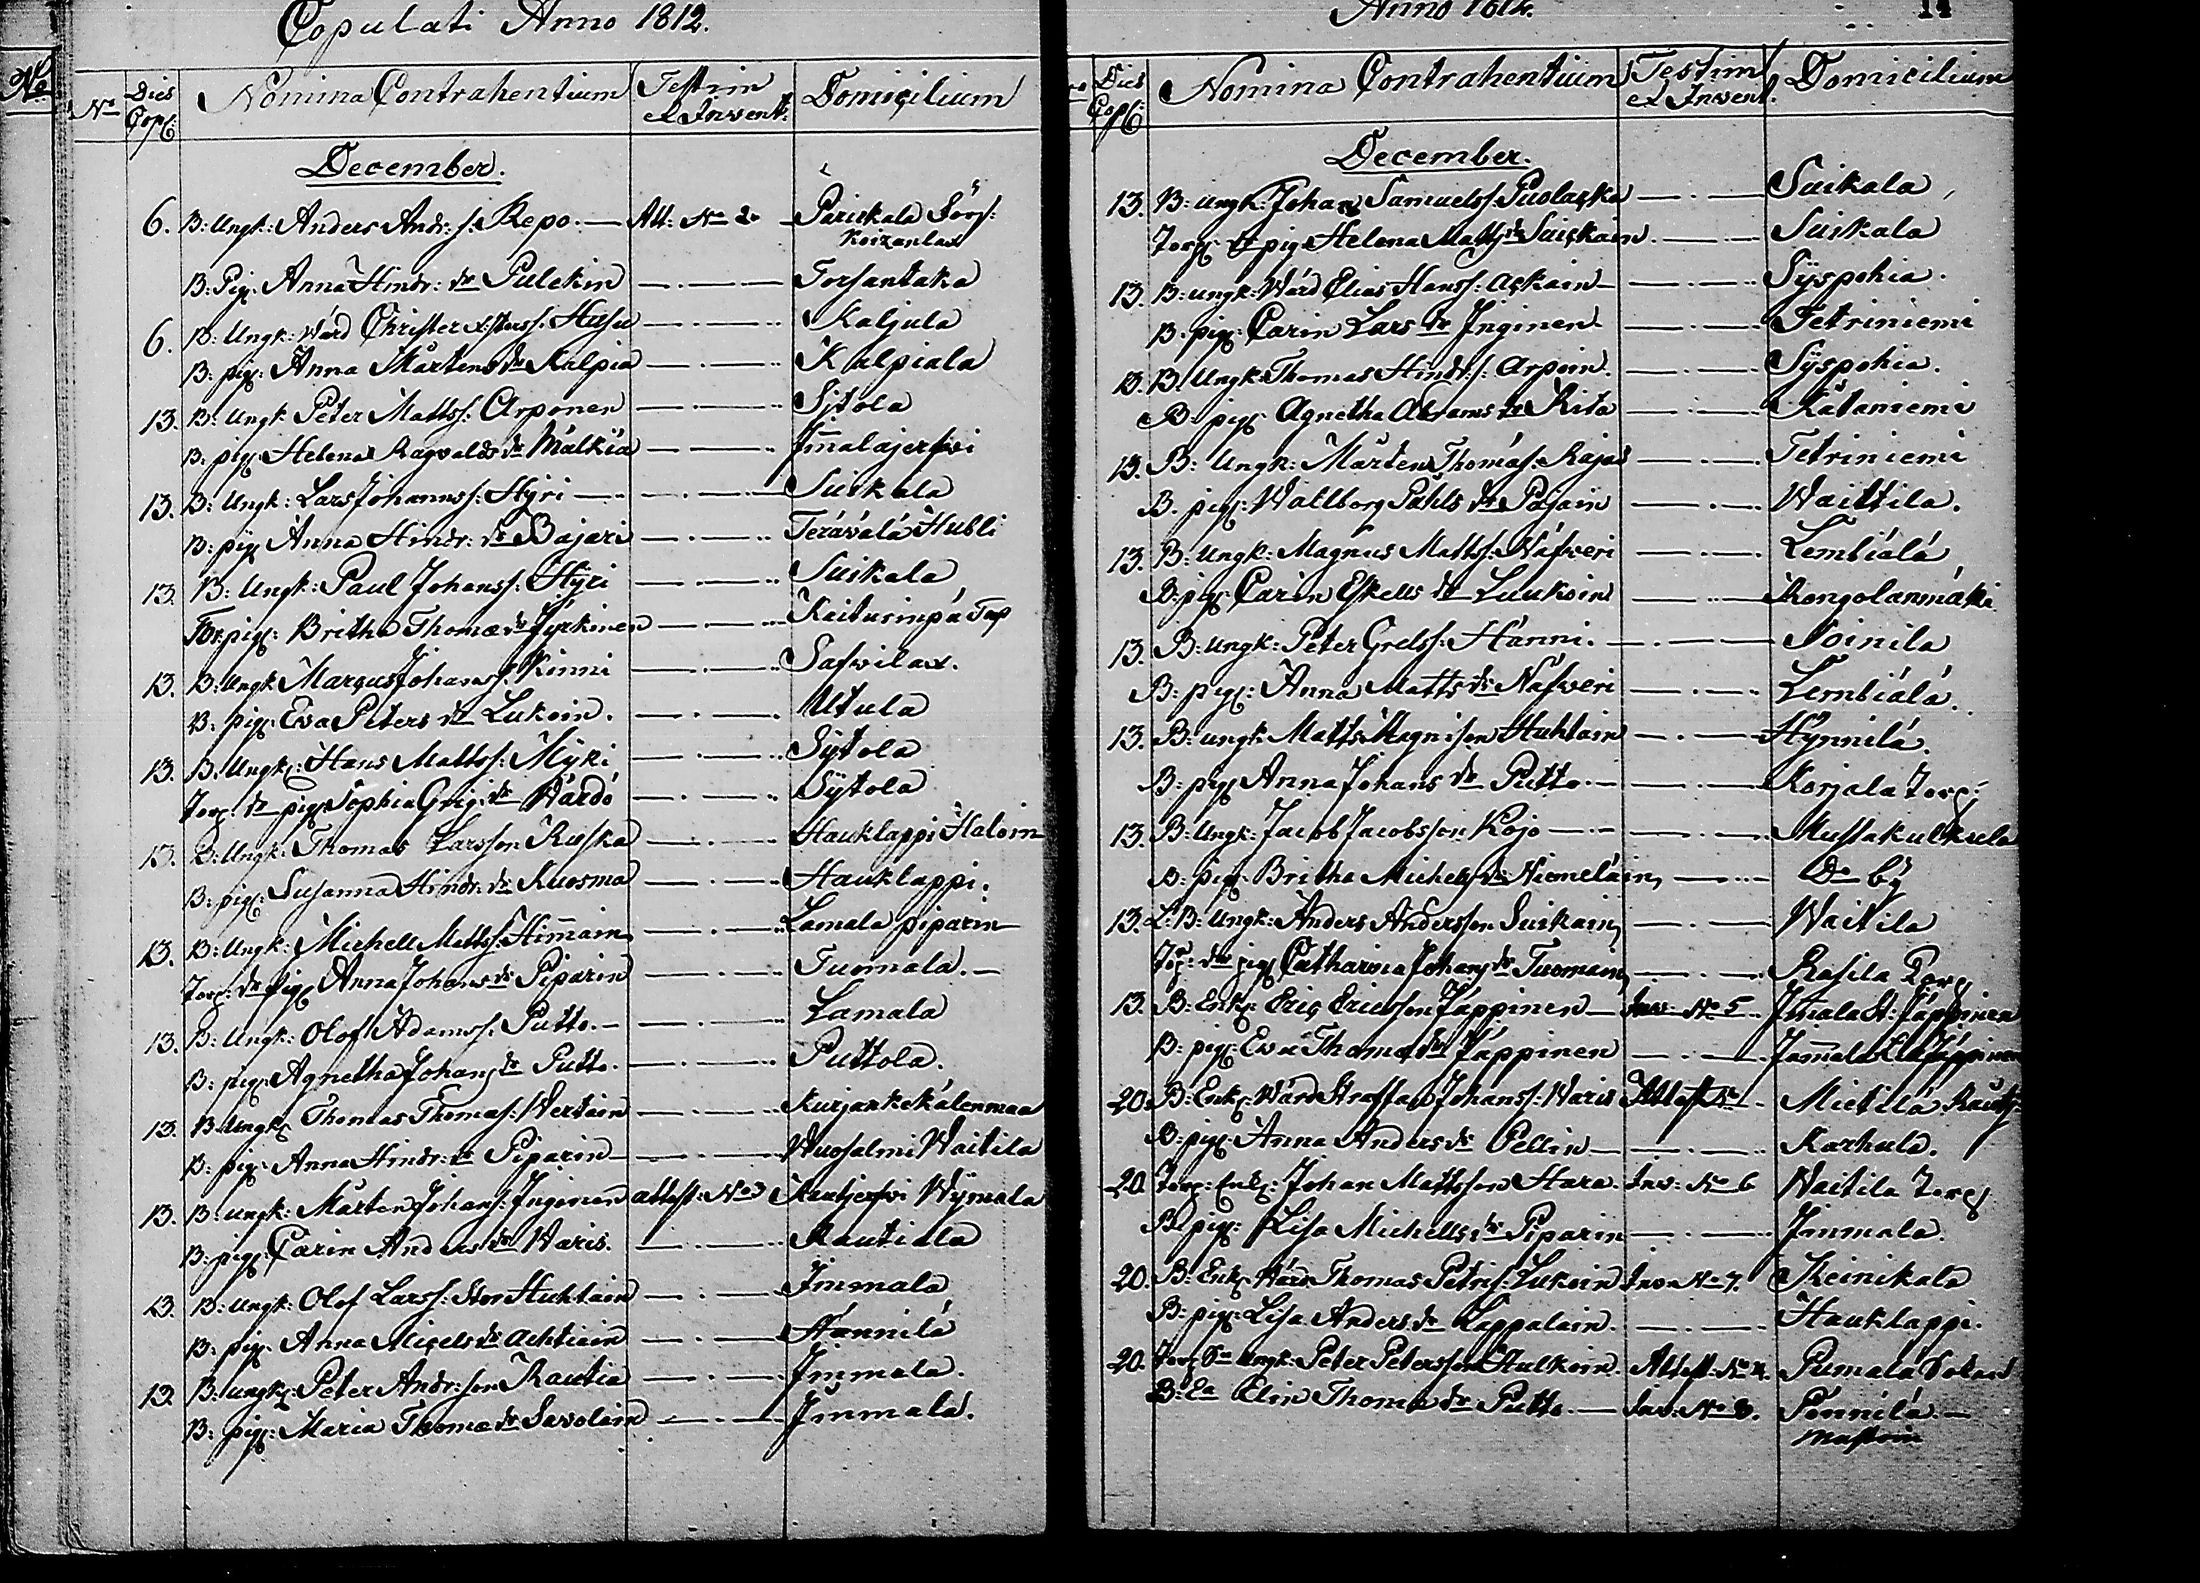 Copulati Anno 1812.
No
No Dies Cop: Nomina Contrahentium Testim et Invent: Domicilium
December.
6. B: Ungk: Anders Andr: s. Repo. — Att: No 2. — Parickala Förs:
Koizanlax
B: Pig: Anna Hindr: dr Pulckin — . — Torsantaka
6. B: Ungk: Wärd Christer Husu — . — Kaljula
B: pig: Anna Mårtens dr Kalpia — . — Kalpiala
13. B: Ungk: Peter Mattss: Arponen — . — Sjtola
B: pig: Helena Ragvalds dr Mälkiä — . — Jmalajerfwi
13. B: Ungk: Lars Johanss: Hyri — . — Suikala
B: pig: Anna Hindr: dr Bajari — . — Teräwälä Hubli
13. B: Ungk: Paul Johanss: Hyri — . — Suikala
pig: Britha Thomæ dr Jyrkinen — . — Kaitusinpä
13. B: Ungk: Marcus Johans s. Kinni — . — Safwilax.
B: pig: Ewa Peters dr Lukoin. — . — Utula
13. B: Ungk: Hans Mattss: Myki — . — Sytola
Torp: dr pig: Sophia Grig: dr Wärdö — . — Sytola
13. B: Ungk: Thomas Larsson Ruska — . — Hauklappi Haloin
B: pig: Susanna Hindr: dr Kuosma — . — Hauklappi.
13. B: Ungk: Michell Mattss: Himain — . — Lamala piparin
Torp: dr pig: Anna Johans dr Piparin — . — Tuomala. —
13. B: Ungk: Olof Adamss. Putto. — . — Lamala
B: pig: Agnetha Johans dr Putto. — . — Puttola.
13. B: Ungk: Thomas Thomas: Wertain — . — Kurjankekälenmaa
B: pig: Anna Hindr: dr Piparin — . — Wuosalmi Waitila
13. B: Ungk: Mårten Johans: Inginen attest: No 3 Rautjerfwi Wymala
B: pig: Carin Anders dr Waris. — . — Rautiala
13. B: Ungk: Olof Larss: Stor Huhtain — . — Immala
B: pig: Anna Micels dr Achtiain — . — Hännilä
13. B: ungk: Peter Andr: son Rautia — . — Jmmala.
B: pig: Maria Thomæ dr Savolain — . — Jmmala.
Anno 1812. 14
Dies Cop: Nomina Contrahentium Testim et Invent. Domicilium
December.
13. B: ungk: Johan Samuelss: Puolacka — . — Suikala
Torp: dr pig: Helena Matts dr Suickain. — . — Suikala
13. B: ungk: Wärd Elias Hanss: Ackain — . — Syspohia.
B: pig: Carin Lars dr Inginen. — . — Tetriniemi
13. B: Ungk: Thomas Hindr: s: Arpoin. — . — Syspohia.
B: pig: Agnetha Abrams dr Rita — . — Kätäniemi
13. B: Ungk: Mårten Thomas: Raja — . — Tetriniemi
B: pig: Wallborg Påhls dr Pajain — . — Waittila.
13. B: Ungk: Magnus Mattss: Näfweri — . — Lembiälä
B: pig: Carin Eskells dr Luukoin — . — Rongolanmäki
13. B: Ungk: Peter Grelss: Hänni. — . — Soinila
B: pig: Anna Matts dr Näfweri — . — Lembiälä.
13. B: ungk: Matts Magnison Huhtain — . — Hynnilä.
B: pig: Anna Johans dr Putto. — . — Korjala Torp:
13. B: Ungk: Jacob Jacobsson Kojo — . — Mustakulkula
B: pig: Britha Michells dr Niemeläin, — . — Do by
13. L: B: Ungk: Anders Andersson Suikain, — . — Waitila
Torp: dr pig: Catharina Johans dr Tuomain, — . — Rasila Torp
13. B: Enk: Eric Ericsson Jäppinen — Inv: No 5 Jmala St: Jäppinen
B: pig: Ewa Thomæ dr Jäppinen — . — Jammala Lill Jäppinen
20. B: Enk: Wärd Staffan Johanss: Waris Attest No . Mietilä Rautj:
B: pig: Anna Anders dr Pellin — . — Karhula.
20. Torp: Enk: Johan Mattsson Hara. Inv: No 6 Waitila Torp
B: pig: Lisa Michells dr Piparin — . — Jmmala.
20. B: Enk: Wärd Thomas Petris: Lukoin Inv: No 7. Keinikala
B: pig: Lisa Anders dr Lappalain. — . — Hauklappi.
20. Torp: Sn Ungk: Peter Petersson Hulkoin. Attest: No 4. Pumala
B: Ea Elin Thomæ dr Putto. — Inv: No 8. Pennilä. —